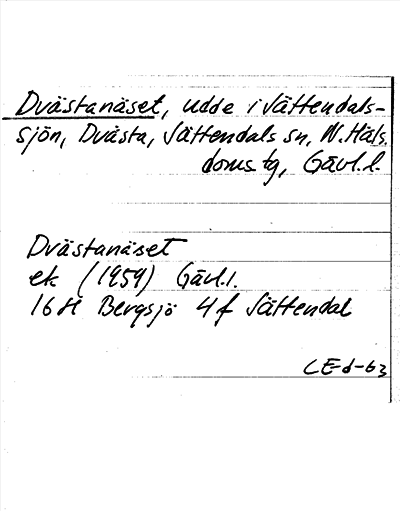 Dvästanäset, udde i Jättendals-
sjön, Dvästa, Jättendals sn, N. Häls.
doms tg, Gävl. l.
Dvästanäset
ek (1959) Gävl. l.
16 H Bergsjö 4 f Jättendal
LEd-63